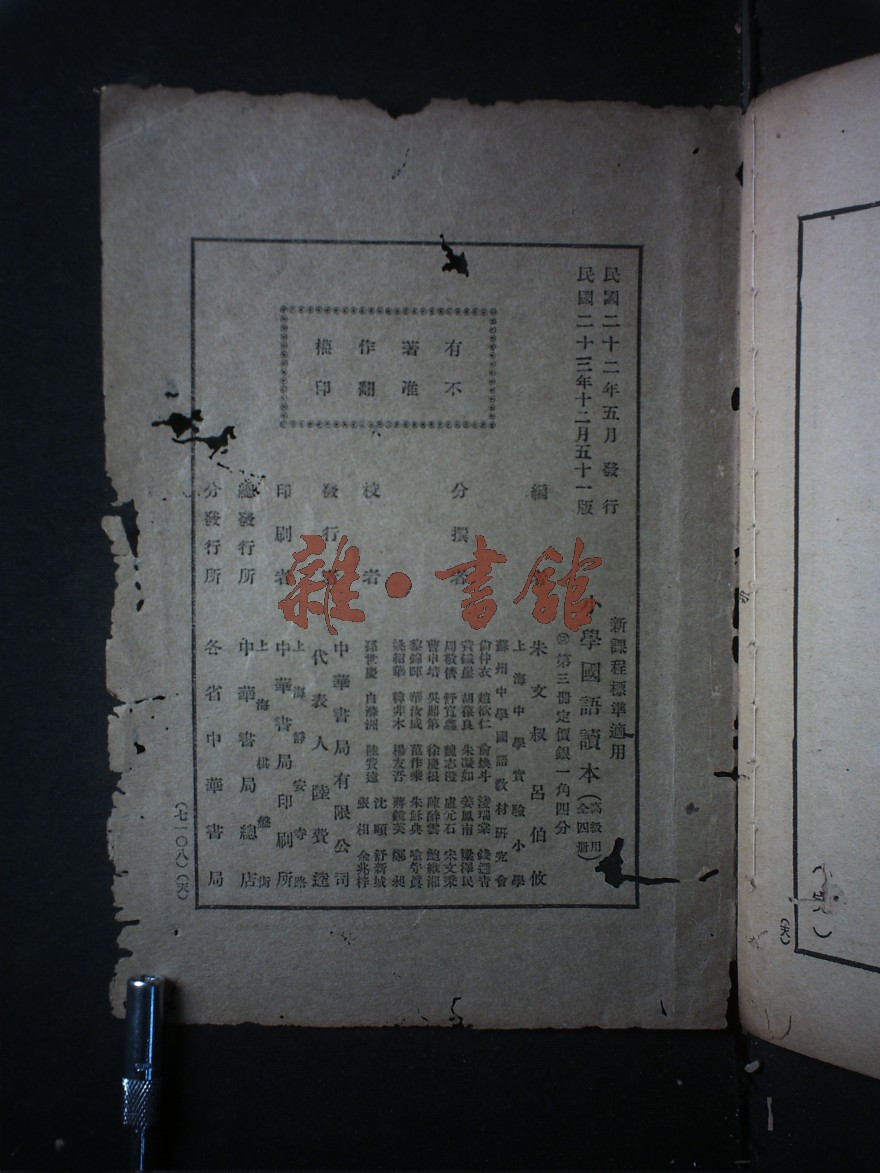 民國二十二年五月發行
民國二十三年十二月五十一版
新課程標準適用
小學國語讀本
(高級用
全四册)
第三冊定價銀一角四分
有著作權
不准翻印
編者
朱文叔 呂伯攸
分撰者
上海中學實驗小學
蘇州中學國語教材研究會
俞仲衣 趙欲仁 俞煥斗
胡葆良 朱凝如 姜鳳南 梁澤民
周敬儕 魏志澄 盧元石 宋文秉
曹中培 徐慶振 陳醉雲
黎錦暉 華汝成 范作乘 朱穌典 喻守眞
姚紹華 韓非木 楊友吾 蔣鏡芙 鄭昶
校者
孫世慶 白滌洲 陸衣言
沈頤 舒新城
張相 金兆梓
發行者
中華書局有限公司
代表人 陸費逵
印刷者
上海靜安寺路
中華書局印刷所
總發行所
上海棋盤街
中華書局總店
分發行所
各省中華書局
(七一〇八)(天)
(天)
雜·書館